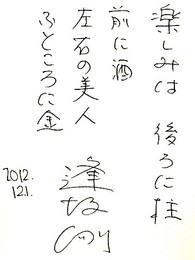 楽しみは 後ろに柱
前に酒
左右の美人
ふところに金
2012.
12.1.